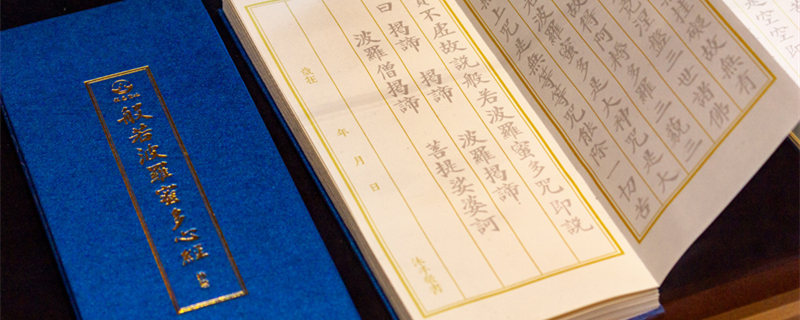 般若波羅蜜多心經
空空即
礙故無有
涅槃三世諸佛
故得阿耨多羅三藐三
若波羅蜜多是大神咒是大
上咒是無等等咒能除一切苦
不虛故說般若波羅蜜多咒即說
曰 揭諦 揭諦 波羅揭諦
波羅僧揭諦 菩提娑婆訶
年 月 日